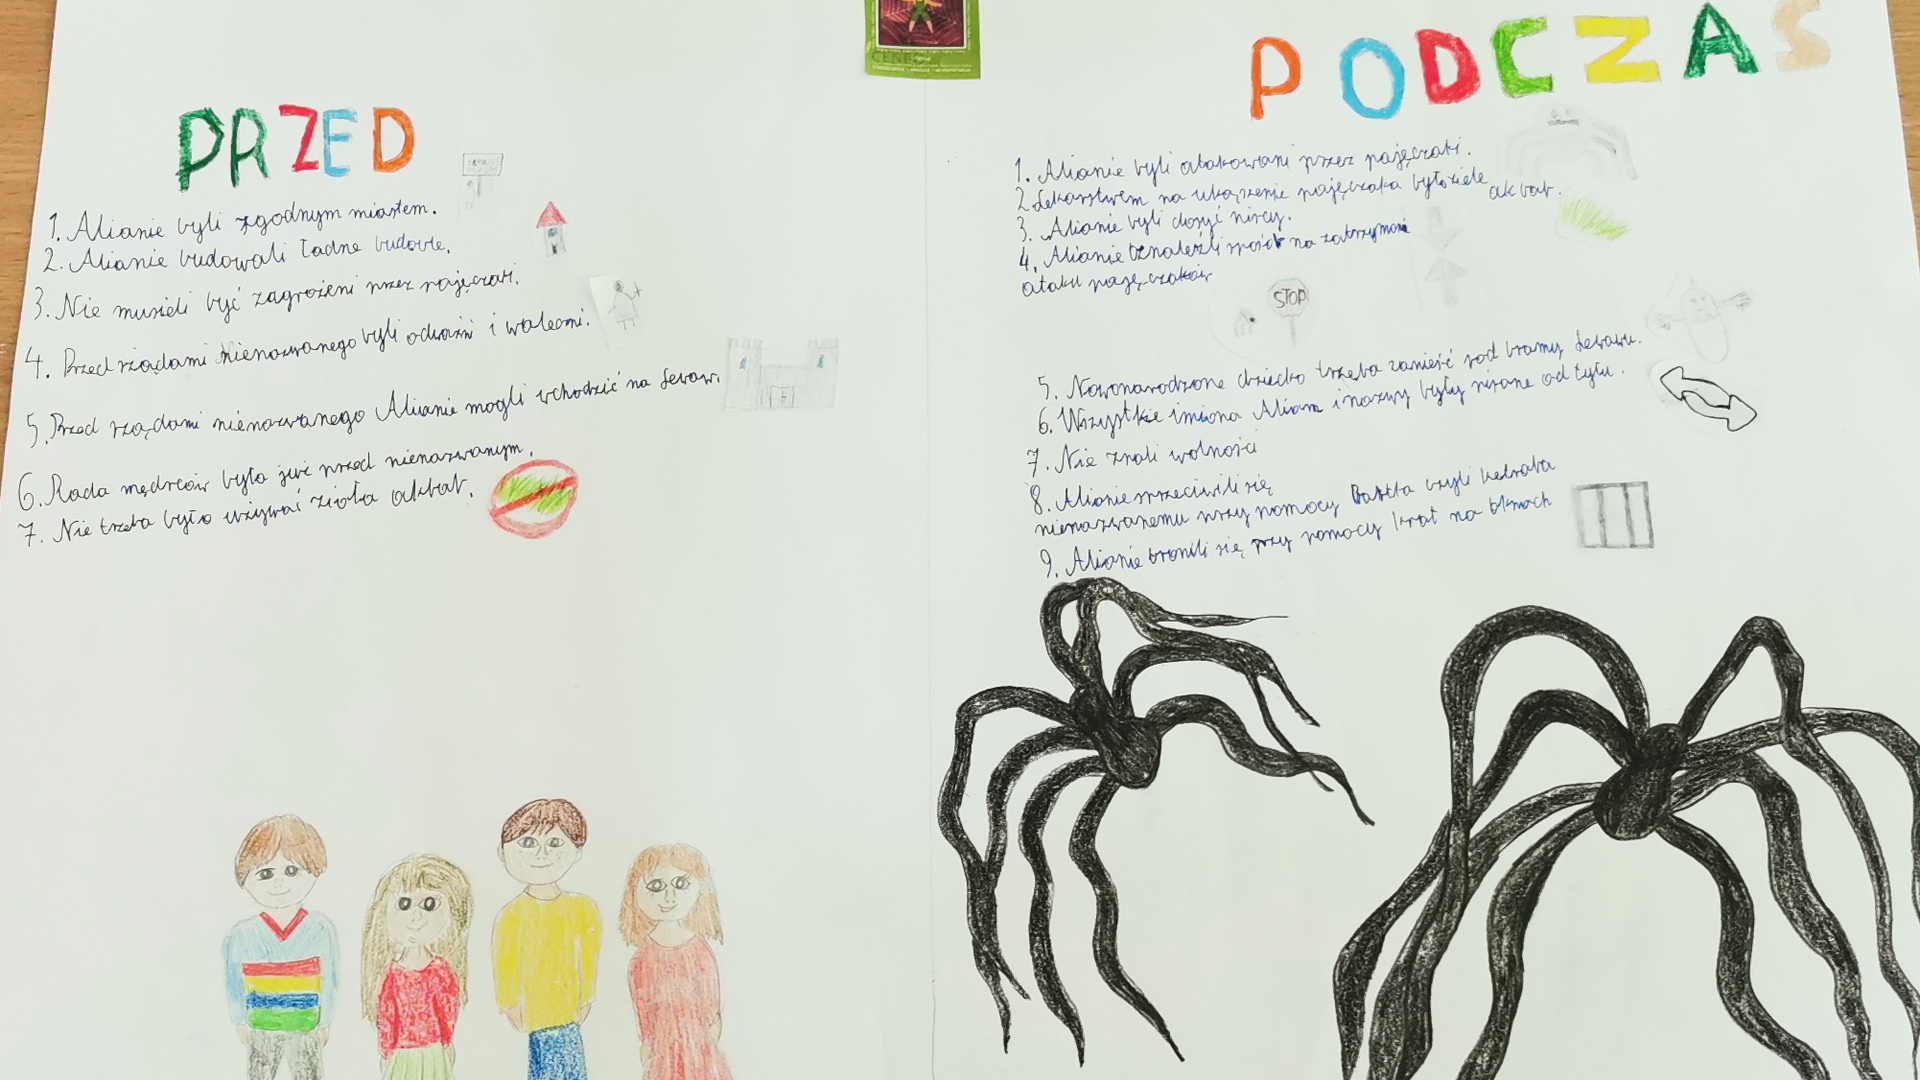 PRZED
1. Alianie byli zgodnym miastem.
2. Alianie budowali ładne budowle.
3. Nie musieli być zagrożeni przez pajęczaki.
4. Przed rządami nienazwanego byli odważni i waleczni.
5. Przed rządami nienazwanego Alianie mogli wchodzić na Sewow.
6. Rada mędrców była jeszcze przed nienazwanym.
7. Nie trzeba było używać zioła akbat.
PODCZAS
1. Alianie byli atakowani przez pajęczaki.
2. Lekarstwem na ukąszenie pajęczaka było ziele akbat.
3. Alianie byli dosyć niscy.
4. Alianie znaleźli sposób na zatrzymanie
ataku pajęczaków
STOP
5. Nowonarodzone dziecko trzeba zanieść pod bramy Sewowu.
6. Wszystkie imiona Alian i nazwy były pisane od tyłu.
7. Nie znali wolności
8. Alianie sprzeciwili się
nienazwanemu przy pomocy czyli
9. Alianie bronili się przy pomocy krat na oknach